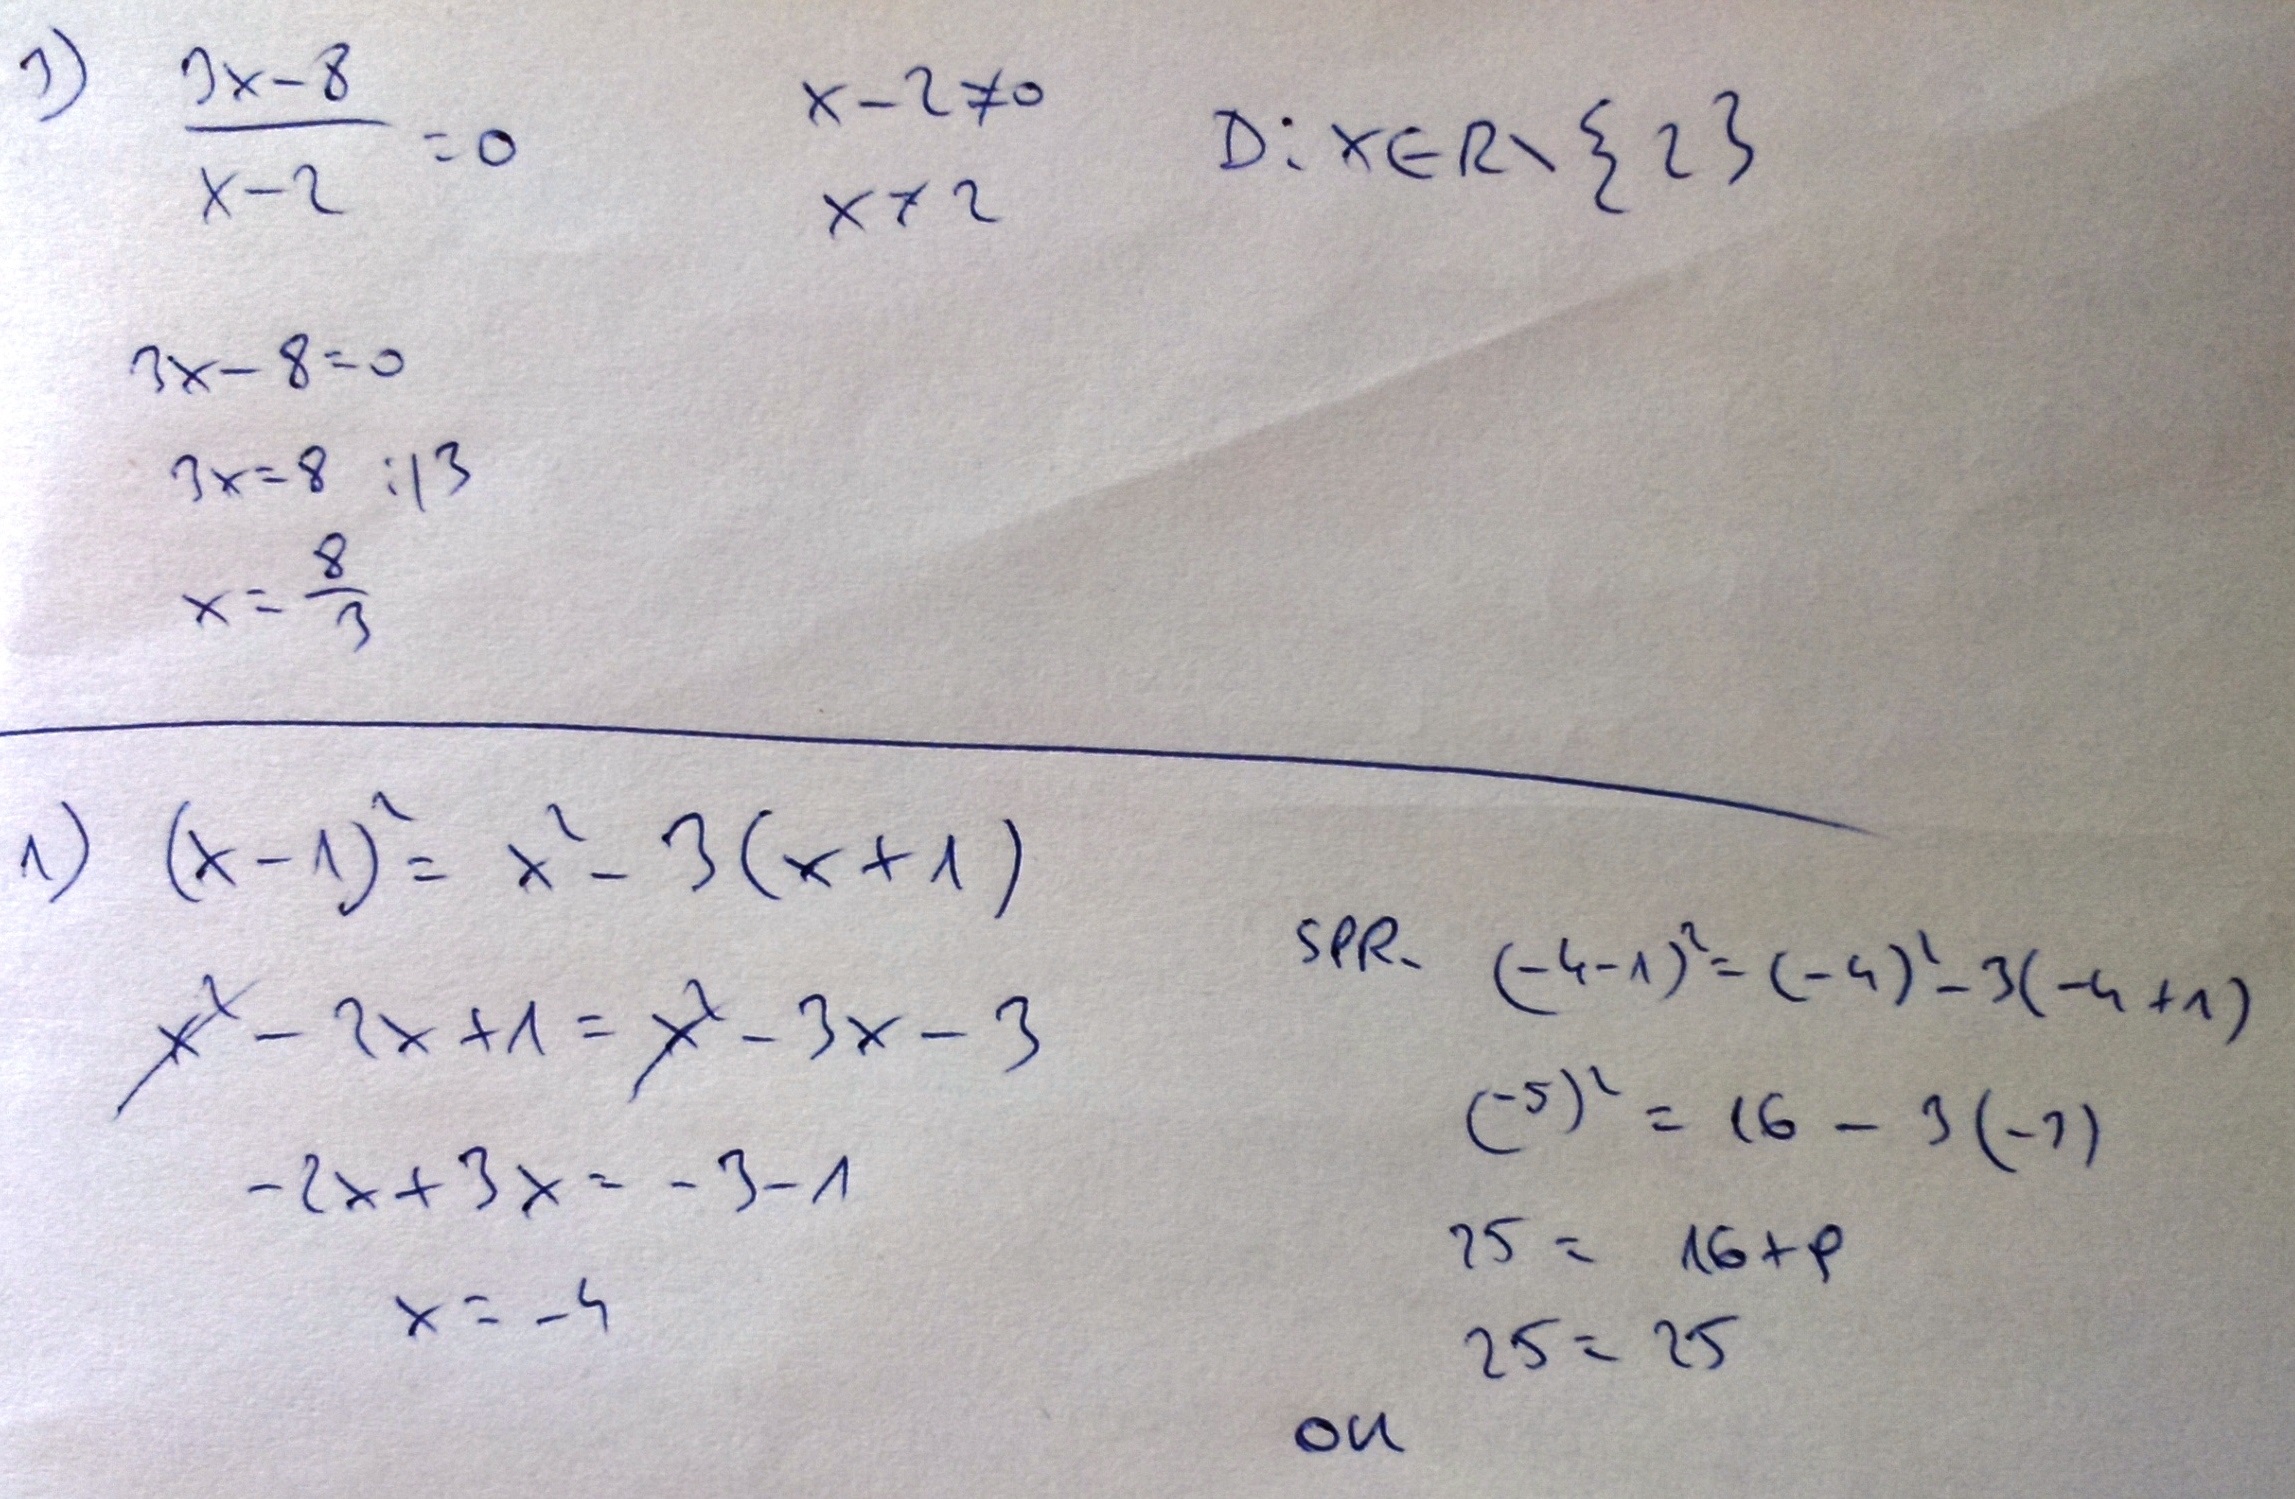 1) \frac{3x-8}{x-2} = 0
x-2≠0
x≠2
D: x∈R\{2}
3x-8=0
3x=8 :|3
x=\frac{8}{3}
1) (x-1)²= x²-3(x+1)
x²-2x+1=x²-3x-3
-2x+3x=-3-1
x=-4
SPR. (-4-1)²=(-4)²-3(-4+1)
(-5)² = 16 - 3(-3)
25 = 16+9
25=25
OK